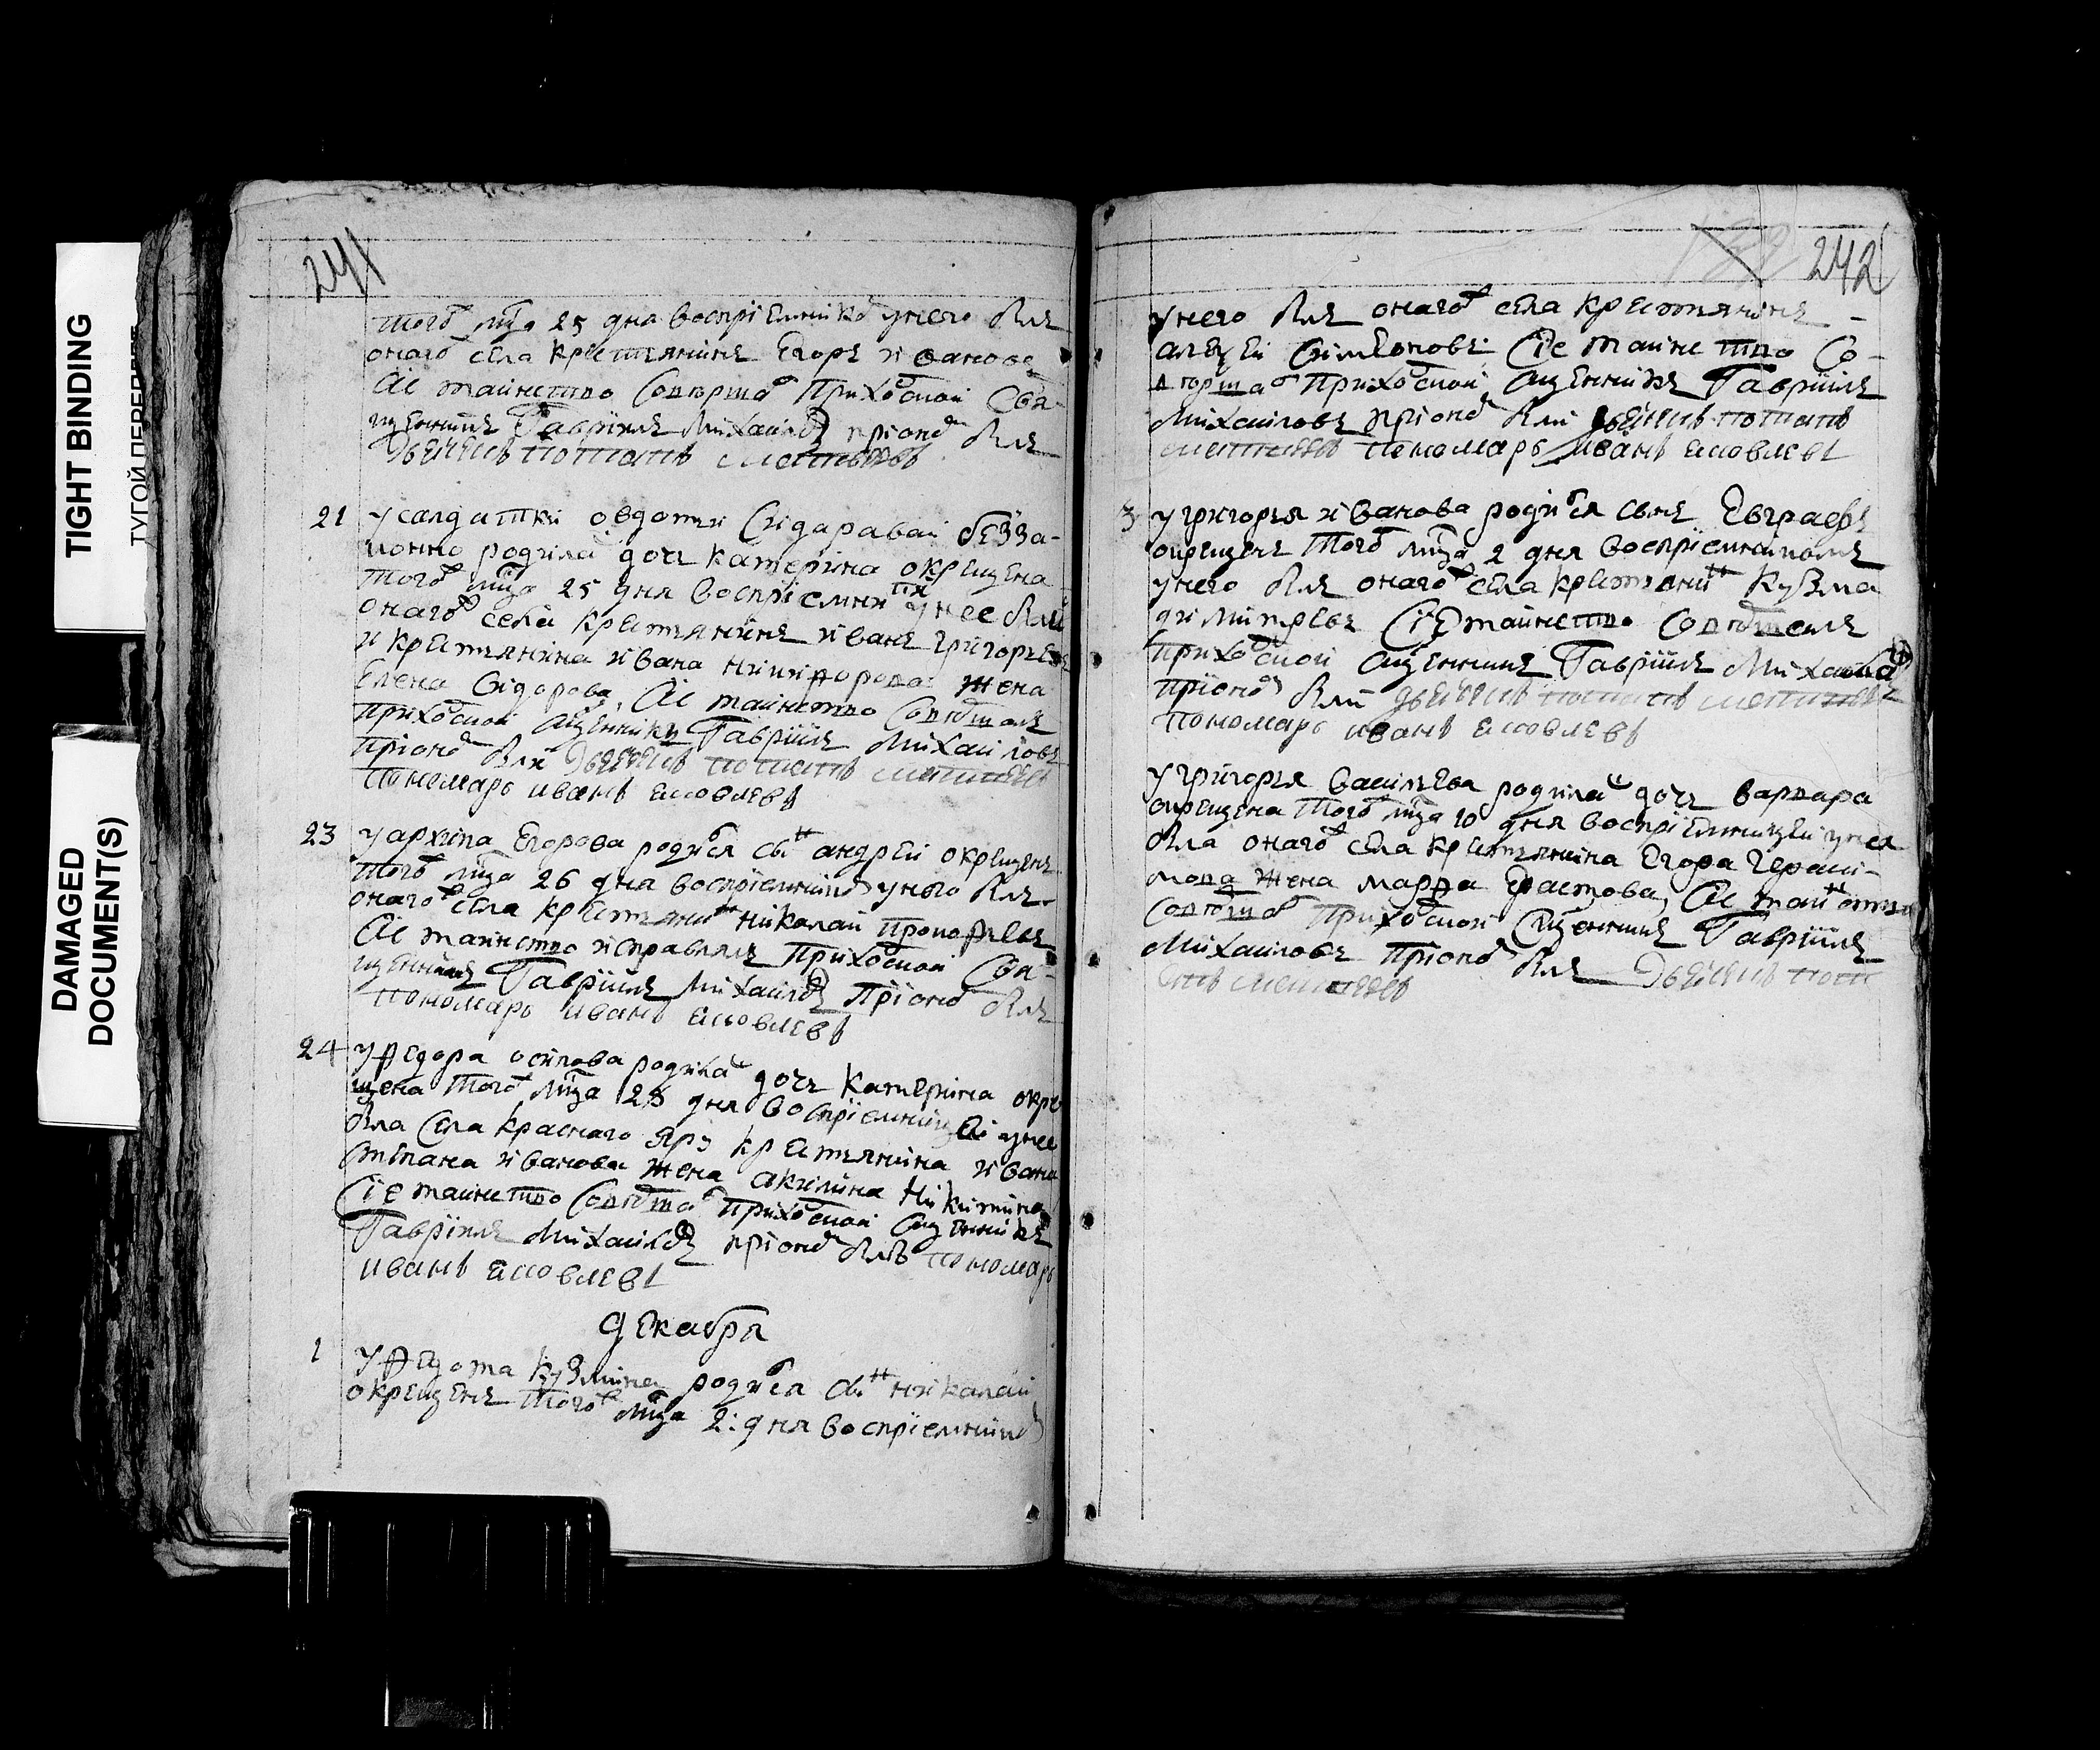 TIGHT BINDING
ТУГОЙ ПЕРЕПЛЕТ
DAMAGED
DOCUMENT(S)
241
того мца 25 дня восприемникъ у него былъ
онаго села крестьянинъ Егоръ Ивановъ
Сіе таинство совершалъ приходской свя-
щенникъ Гаврїилъ Михаиловъ при ономъ былъ
дьячекъ потапъ
21 у салдатки овдотьи Сидаравай безза-
конно родилась дочь катерина окрещена
того мца 25 дня восприемники у нее были
онаго села крестьянинъ иванъ григорьевъ
и крестьянина ивана никифорова жена
Елена Сидорова, Сіе таинство совершалъ
приходской сщенникъ Гаврїилъ Михаиловъ
при ономъ были дьячекъ потапъ
пономарь иванъ яковлевъ
23 у архипа Егорова родился сынъ андрей окрещенъ
того мца 26 дня восприемникомъ у него былъ
онаго села крестьянинъ николай прокофьевъ
Сіе таинство исправлялъ приходской свя-
щенникъ Гаврїилъ Михаиловъ при ономъ былъ
пономарь иванъ яковлевъ
24 у федора осипова родилась дочь катерина окре
щена того мца 28 дня восприемницей у нее
была села краснаго яру крестьянина ивана
степана иванова жена акилина никитина
Сіе таинство совершалъ приходской сщенникъ
Гаврїилъ Михаиловъ при ономъ былъ пономарь
иванъ яковлевъ
декабря
1 у федота кузмина родился сынъ николай
окрещенъ того мца 2: дня восприемникомъ
242
у него былъ онаго села крестьянинъ -
алексей Симеоновъ Сіе таинство со-
вершалъ приходской сщенникъ Гаврїилъ
Михаиловъ при ономъ были дьячекъ потапъ
пономарь иванъ яковлевъ
3 у григорья иванова родился сынъ Евграфъ
окрещенъ того мца 2 дня восприемникомъ
у него былъ онаго села крестьянинъ кузма
димитревъ Сіе таинство совершалъ
приходской сщенникъ Гаврїилъ Михаиловъ
при ономъ были дьячекъ потапъ
пономарь иванъ яковлевъ
у григорья василева родилась дочь варвара
окрещена того мца 10 дня восприемницей у нея
была онаго села крестьянина Егора Гераси-
мова жена марфа Сіе таинство
совершалъ приходской сщенникъ Гаврїилъ
Михаиловъ при ономъ былъ дьячекъ пота